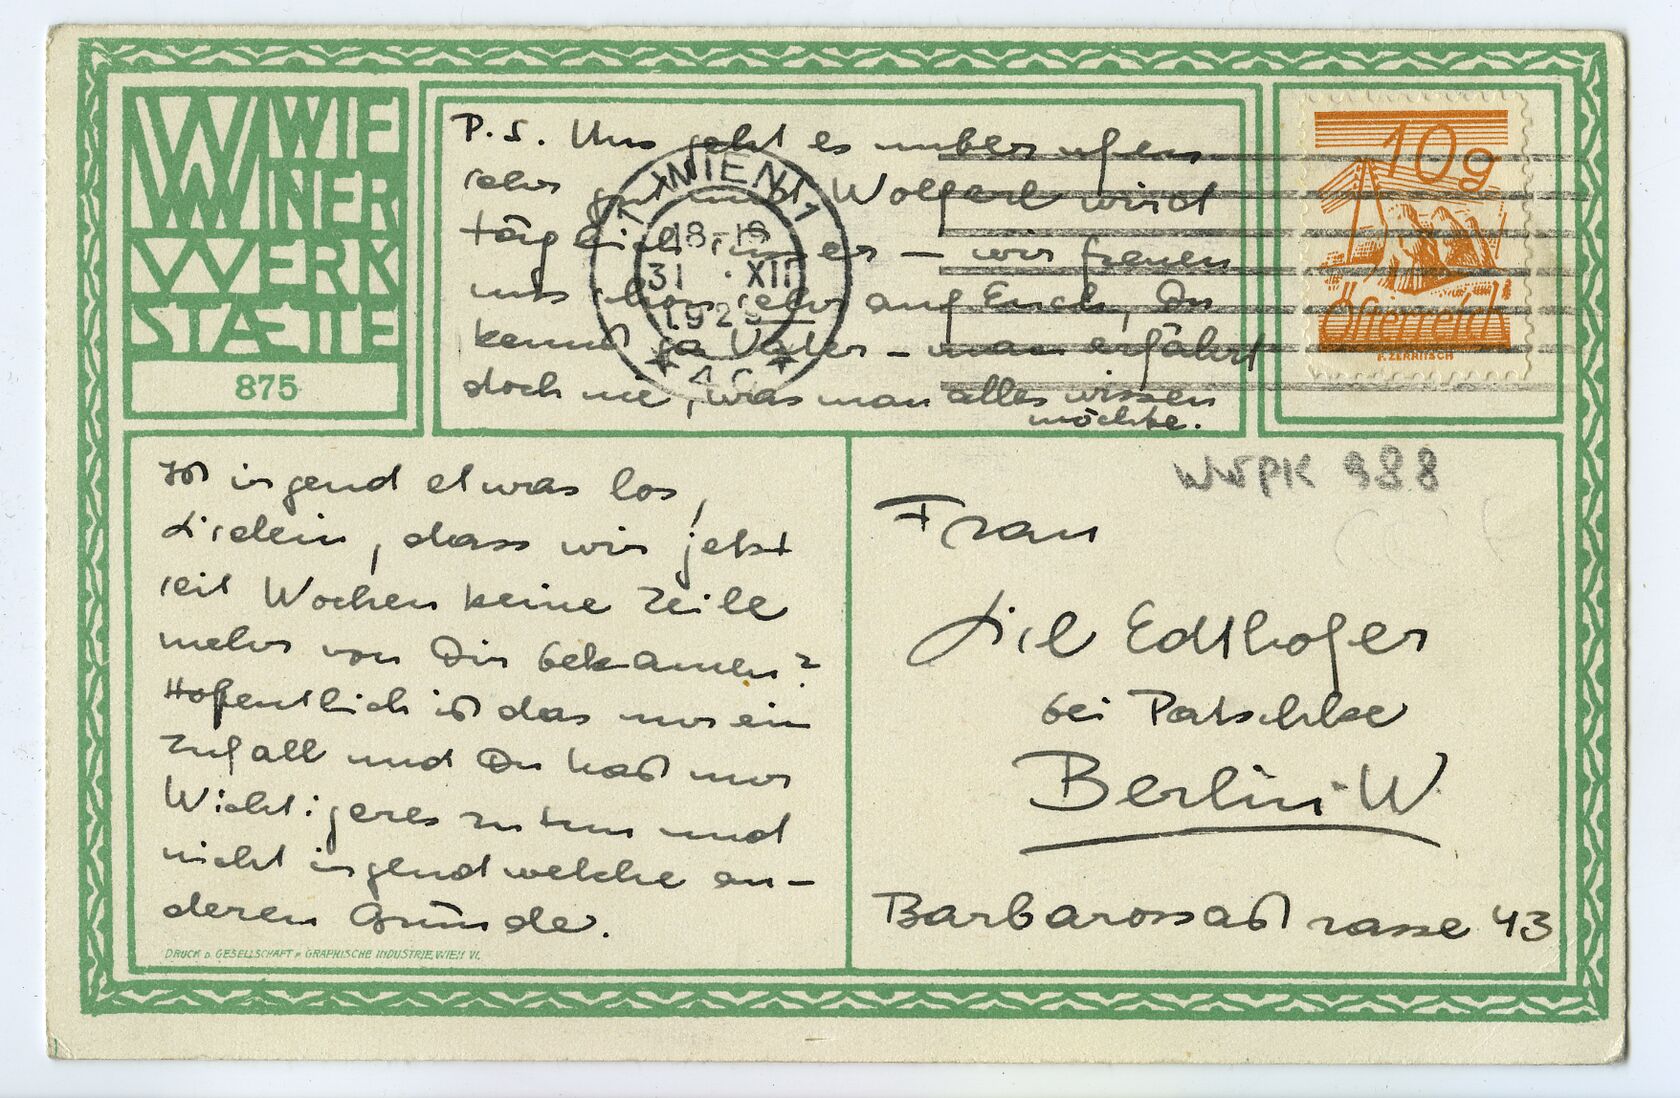 WIE
NER
WERK
STÆTTE
875
P.S. Uns geht es unberufen
sehr gut und Wolferl wird
täglich – wir freuen
uns schon sehr auf Euch, Du
kennst ja Vater – man erfährt
doch nie, was man alles wissen
möchte.
1 WIEN 1
18-19
31 · XII
1929
* 4c *
10g
Österreich
F. ZERRITSCH
Ist irgend etwas los,
Lislein, dass wir jetzt
seit Wochen keine Zeile
mehr von Dir bekamen?
Hoffentlich ist das nur ein
Zufall und Du hast nur
Wichtigeres zu tun und
nicht irgendwelche an-
deren Gründe.
DRUCK D. GESELLSCHAFT F. GRAPHISCHE INDUSTRIE, WIEN VI.
WWPK 988
Frau
Lisl Edthofer
bei Patschke
Berlin-W
Barbarossastrasse 43